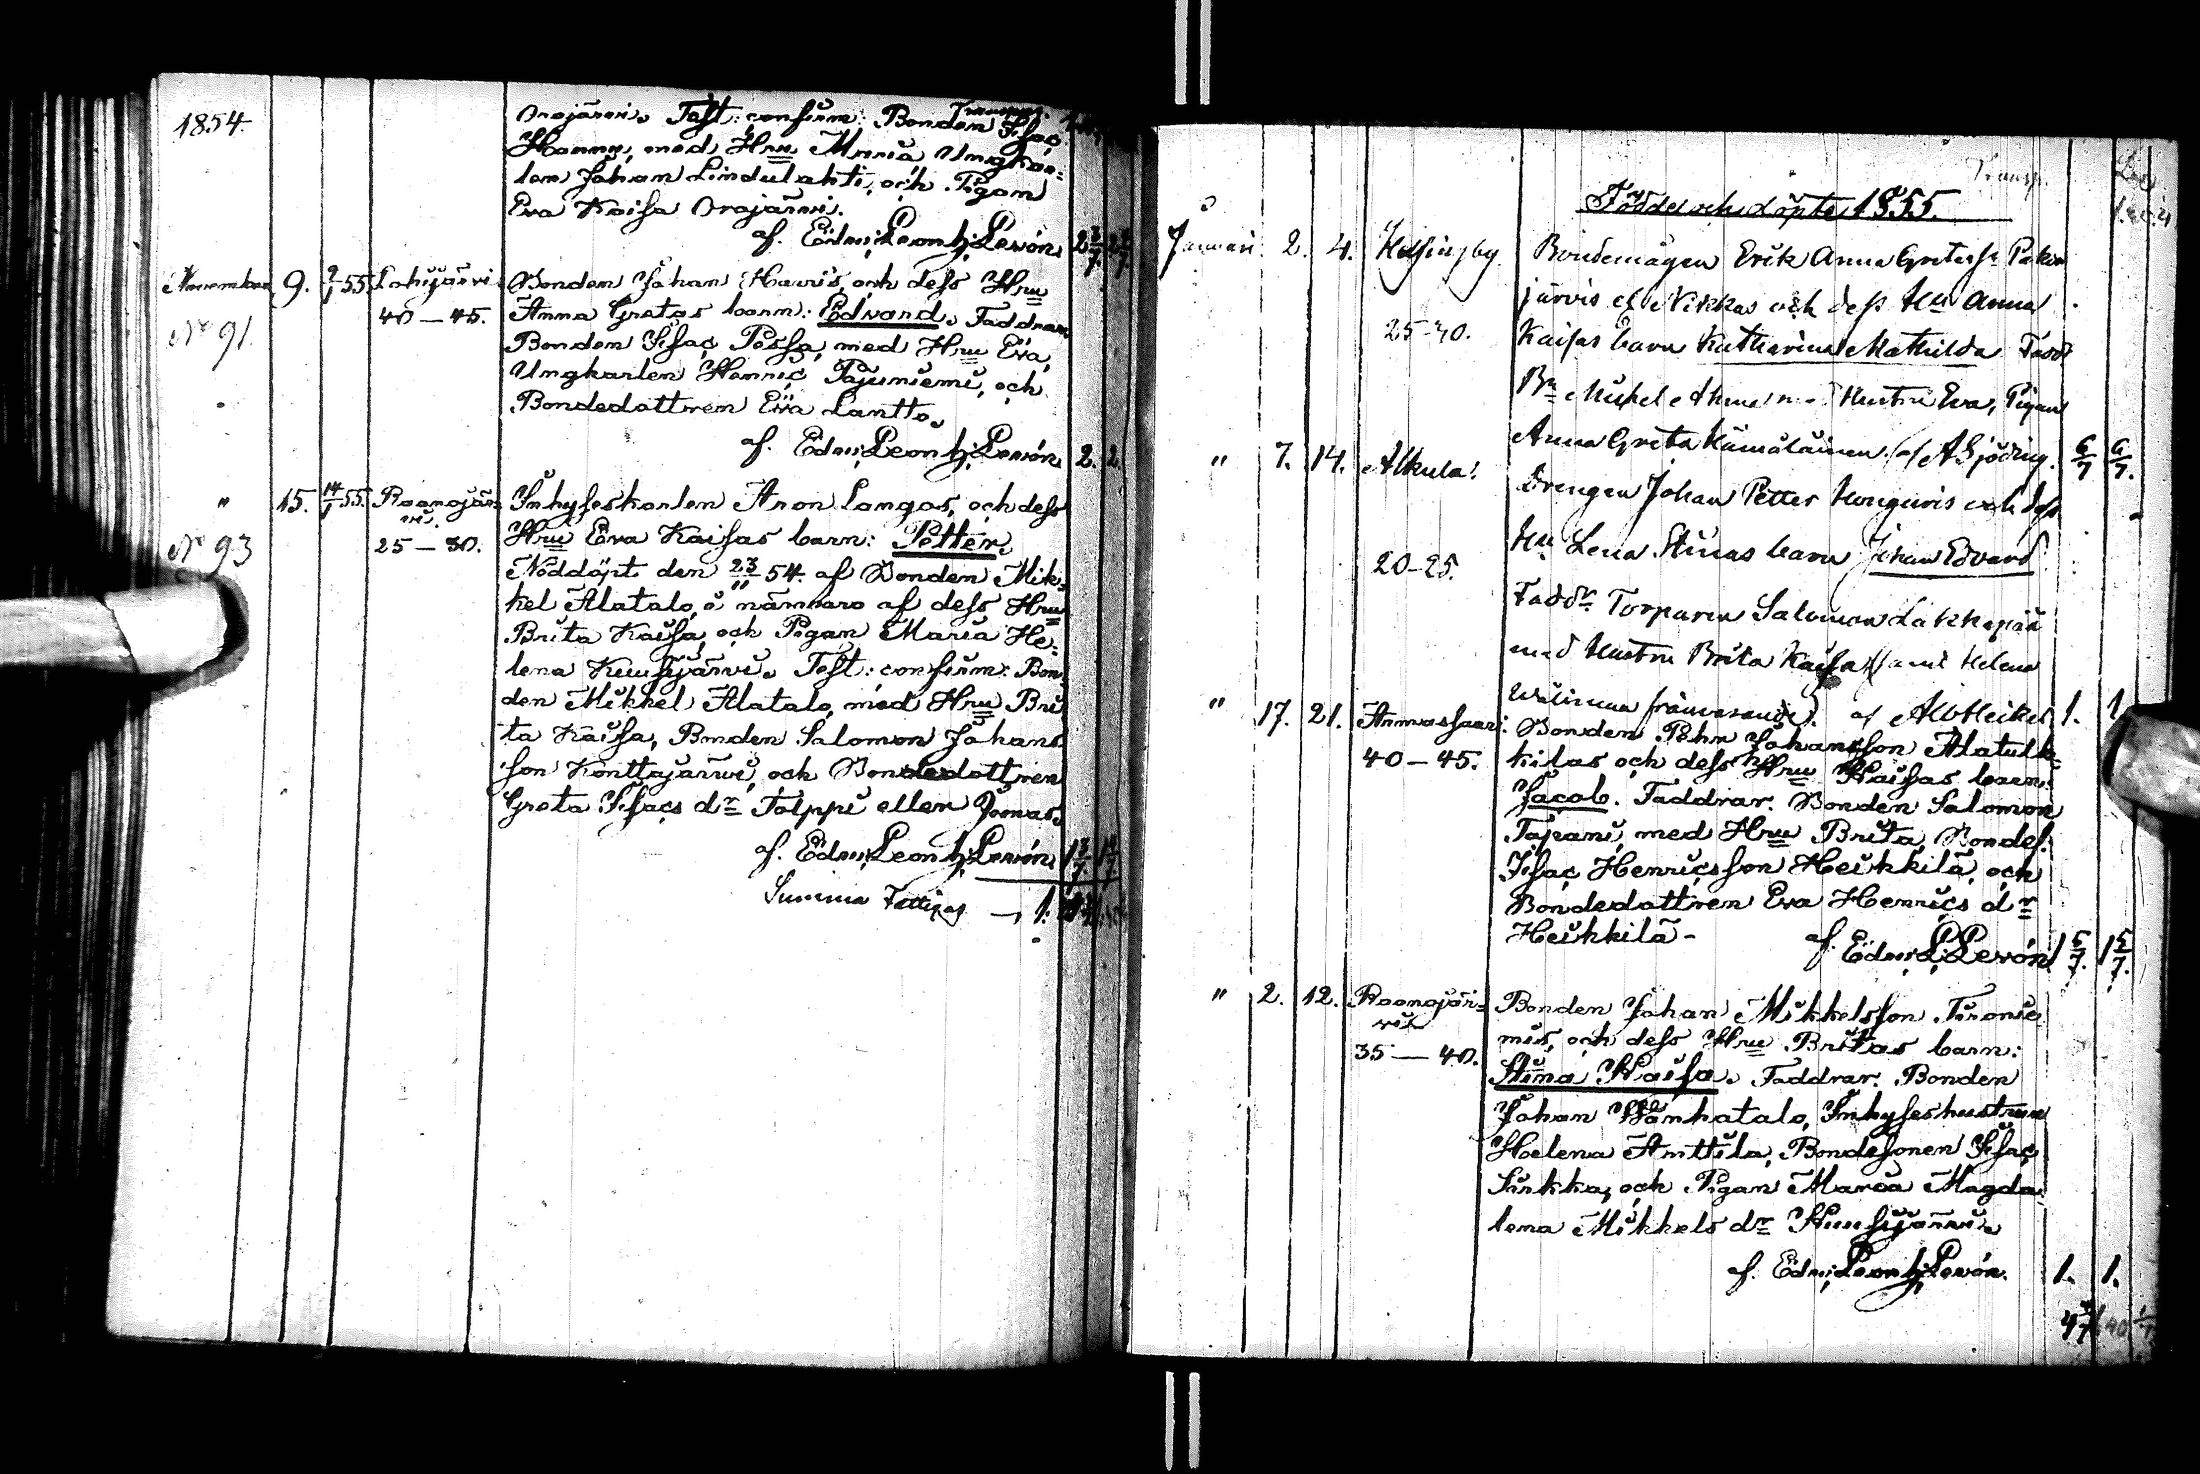 1854.
Orajärvi. Test: confirm: Bonden Isac
Hannu, med Hru Maria, Ungkar-
len Johan Lindulahti, och Pigan
Eva Kaisa Orajärvi.
af. Edv: Leonh: Levón 2 3/7.
November 9. 9/1 55. Lohijärvi
40 — 45.
No 91.
Bonden Johan Havis, och dess Hru
Anna Gretas barn: Edvard. Faddrar
Bonden Isac Pessa, med Hru Eva,
Ungkarlen Henric Pajuniemi, och
Bondedottren Eva Lantto.
af. Edv: Leonh: Levón 2. 2.
" 15. 14/1 55. Raanojär-
vi.
25 — 30.
No 93
Inhyseskarlen Aron Langas, och dess
Hru Eva Kaisas barn: Petter.
Nöddöpt den 23/11 54. af Bonden Mik-
kel Alatalo, i närvaro af dess Hru
Brita Kaisa, och Pigan Maria He-
lena Kuusijärvi. Test: confirm: Bon-
den Mikkel Alatalo, med Hru Bri
ta Kaisa, Bonden Salomon Johans
son Konttajärvi, och Bondedottren
Greta Isacs dr Tolppi eller Joonas.
af. Edv: Leonh: Levón 1 3/7.
Summa
Transp.
Födde och döpte 1855.
Januari. 2. 4. Helsingby
25-40.
Bondemågen Erik Anna Gretas Pekan
järvis el. Nikkas och dess Hu Anna
Kaisas barn Katharina Mathilda Fadd
Bn Mickel med Hustru Eva, Pigan
Anna Greta Hämäläinen. af A Sjöding. 6/7 6/7.
" 7. 14. Alkula.
20-25.
Drengen Johan Petter Kongavis och dess
Hu Lena Stinas barn Johan Edvard
Faddr Torparen Salomon Lakkapää
med Hustru Brita Kaisa samt Helena
(frånvarande). af Alb Heikel 1. 1
" 17. 21. Armassaari.
40 — 45.
Bonden Pehr Johansson Alatulk-
kilas och dess Hru Kaisas barn:
Jacob. Faddrar. Bonden Salomon
Tapani, med Hru Brita, Bondes.
Isac Henricsson Heikkilä, och
Bondedottren Eva Henrics dr
Heikkilä -
af. Edv: L: Levón 1 5/7. 1 5/7.
" 2. 12. Raanojär-
vi
35 — 40.
Bonden Johan Mikkelsson Tironie
mis, och dess Hru Britas barn:
Stina Kaisa. Faddrar. Bonden
Johan Wänhatalo, Inhyseshustrun
Helena Anttila, Bondesonen Isac
Sirkka, och Pigan Maria Magda
lena Mikkels dr Kuusijärvi.
af. Edv: Leonh: Levón. 1. 1.